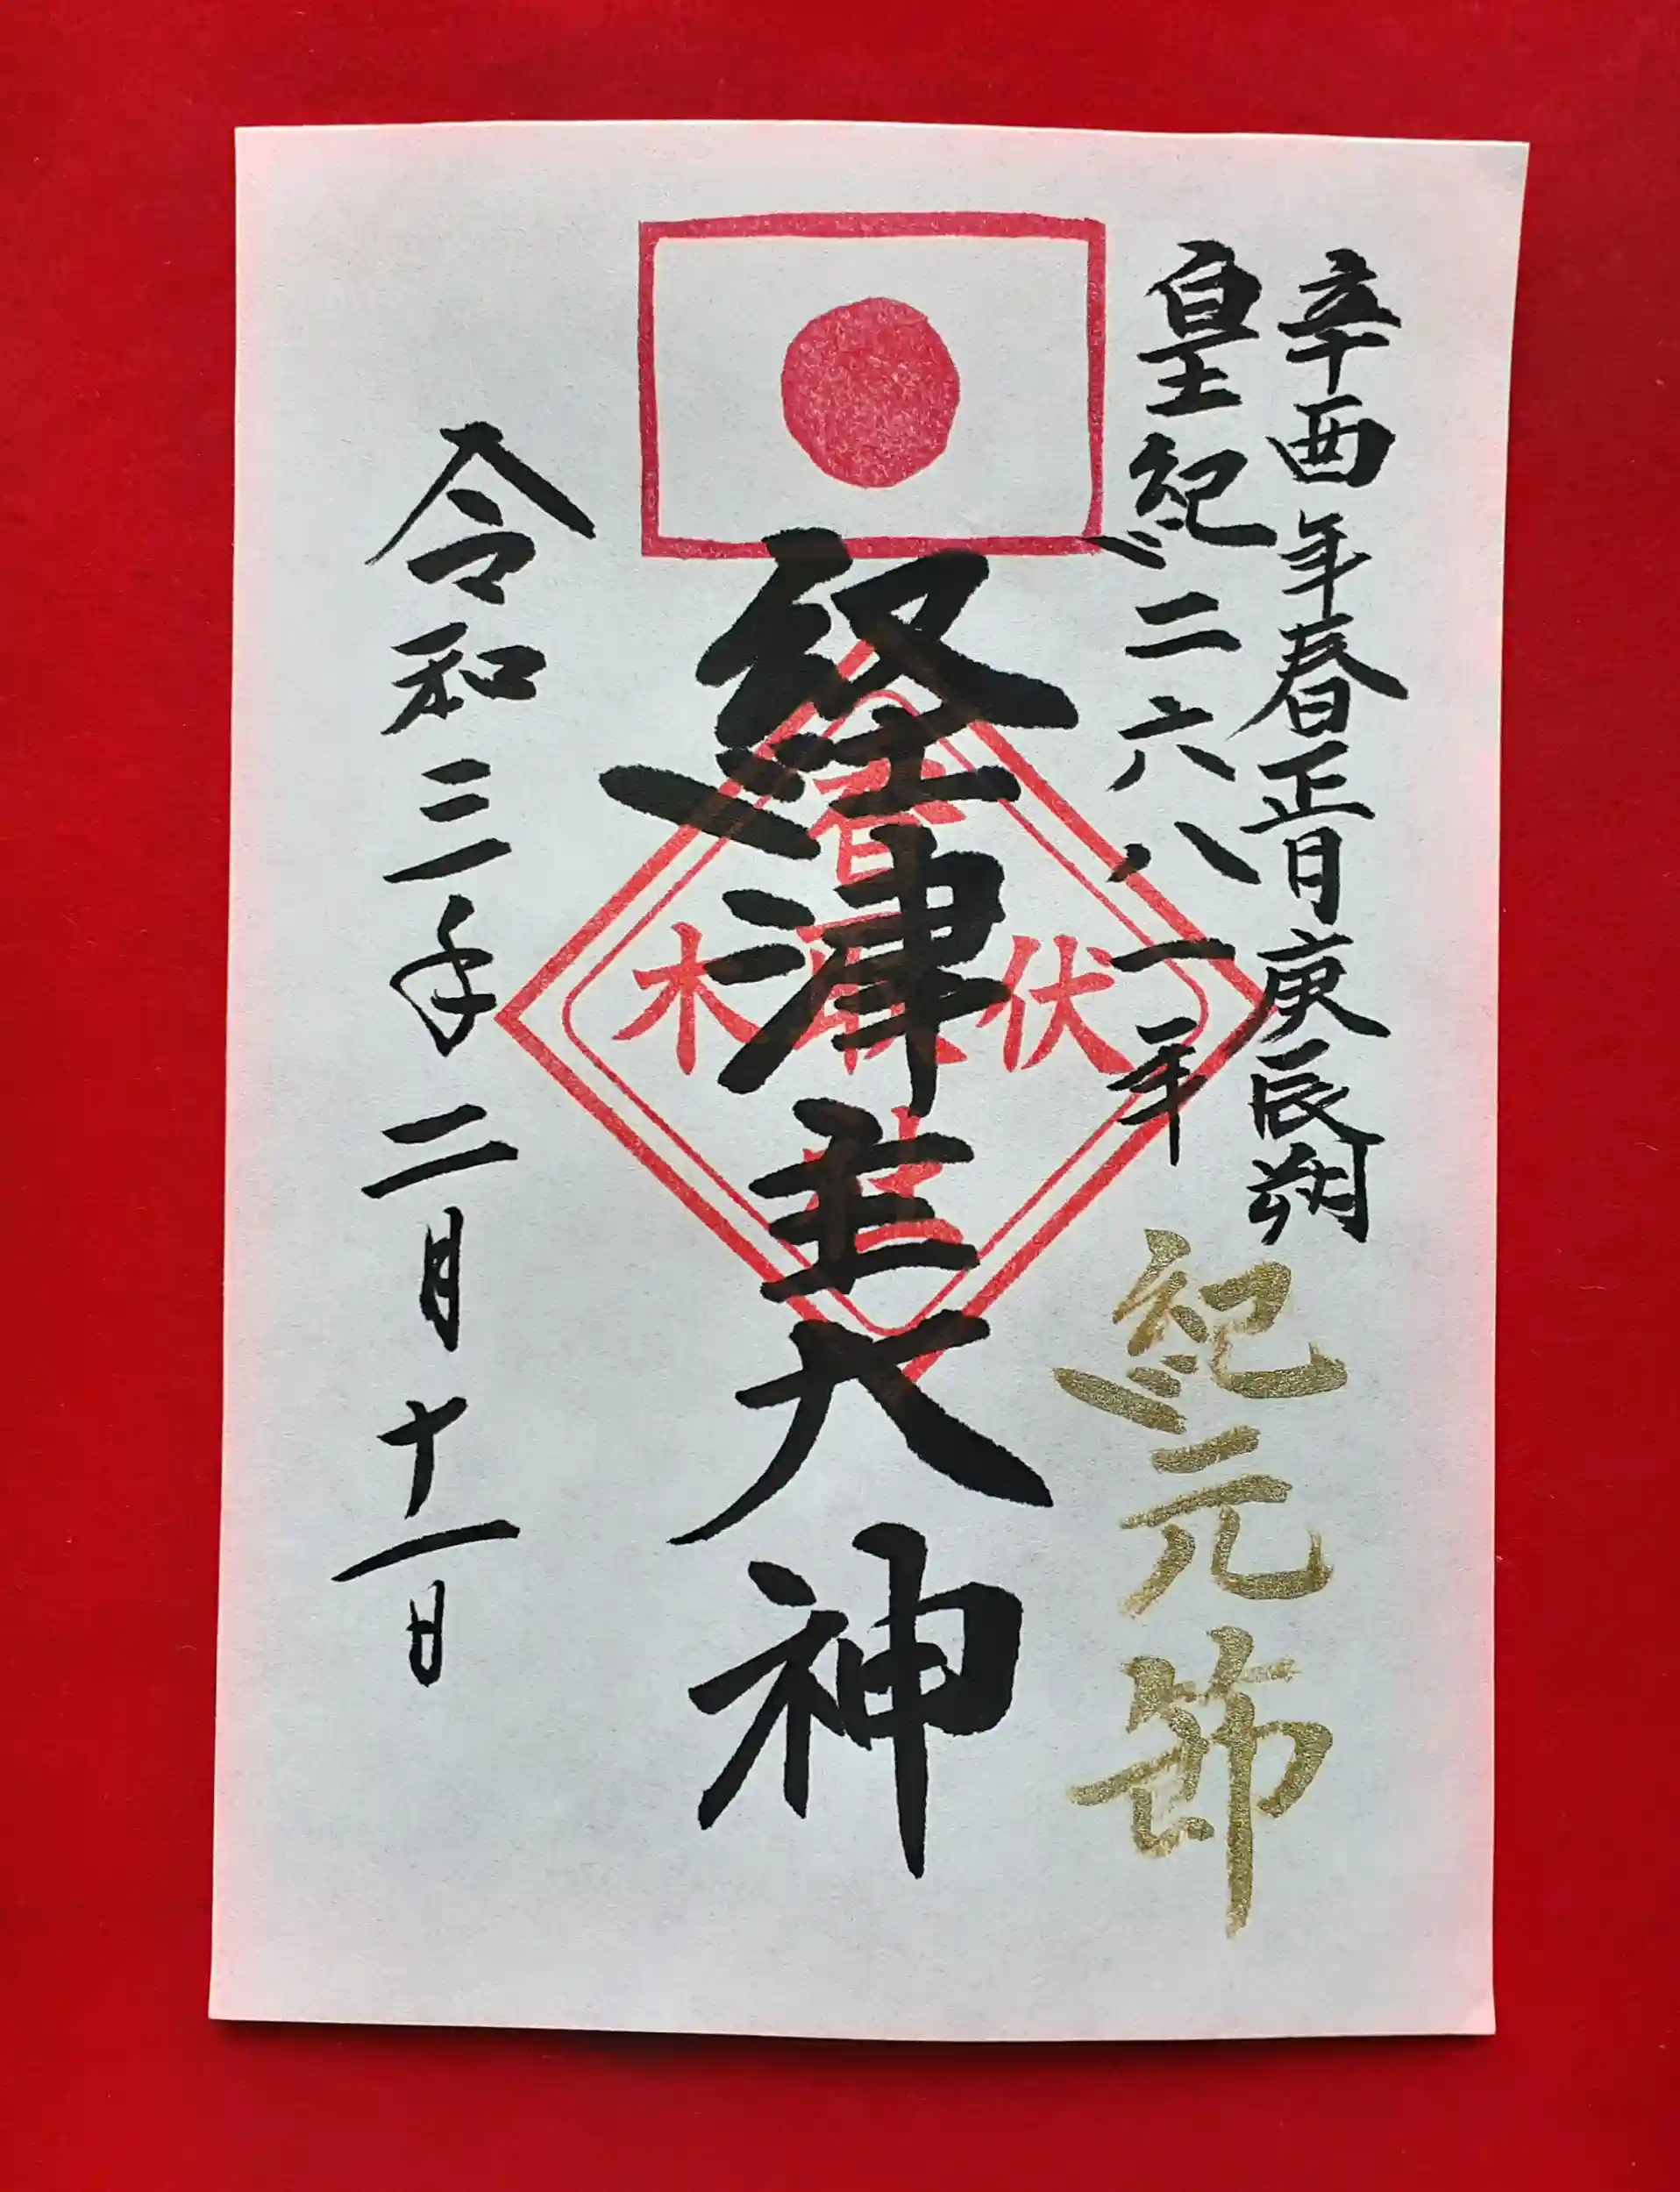 辛酉年春正月庚辰朔
皇紀二六八一年
紀元節
経津主大神
伏木
春日
令和三年二月十一日